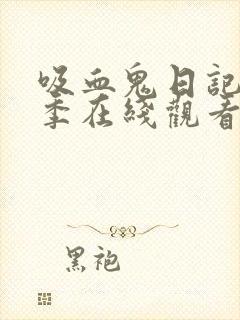 吸血鬼日記
季在綫觀看
黑袍